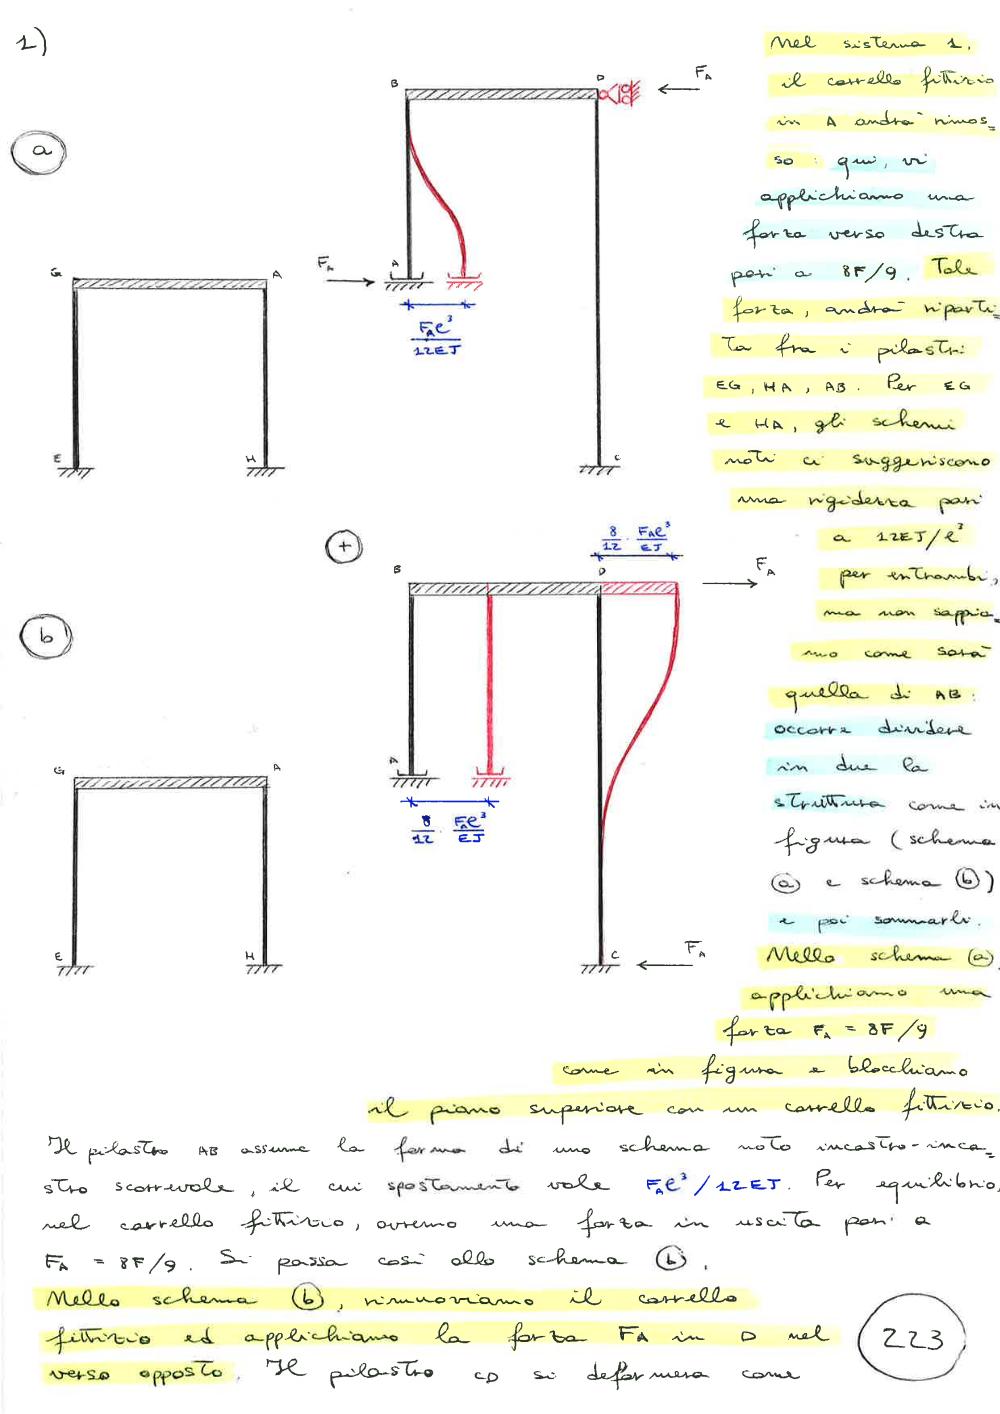 1)
Nel sistema 1,
il carrello fittizio
in A andrà rimos=
so : qui, vi
applichiamo una
forza verso destra
pari a 8F/9. Tale
forza, andrà riparti=
ta fra i pilastri
EG, HA, AB. Per EG
e HA, gli schemi
noti ci suggeriscono
una rigidezza pari
a 12EJ/l³
per entrambi,
ma non sappia=
mo come sarà
quella di AB:
occorre dividere
in due la
struttura come in
figura (schema
(a) e schema (b))
e poi sommarli.
Nello schema (a),
applichiamo una
forza FA = 8F/9
come in figura e blocchiamo
il piano superiore con un carrello fittizio.
Il pilastro AB assume la forma di uno schema noto incastro-inca=
stro scorrevole, il cui spostamento vale FAl³/12EJ. Per equilibrio,
nel carrello fittizio, avremo una forza in uscita pari a
FA = 8F/9. Si passa così allo schema (b).
Nello schema (b), rimuoviamo il carrello
fittizio ed applichiamo la forza FA in D nel
verso opposto. Il pilastro CD si deformerà come
223
a
B
D
FA
G
A
FA
A
FAl³
12EJ
E
H
C
+
8/12 · FAl³/EJ
B
D
FA
b
G
A
A
8/12 · FAl³/EJ
E
H
C
FA